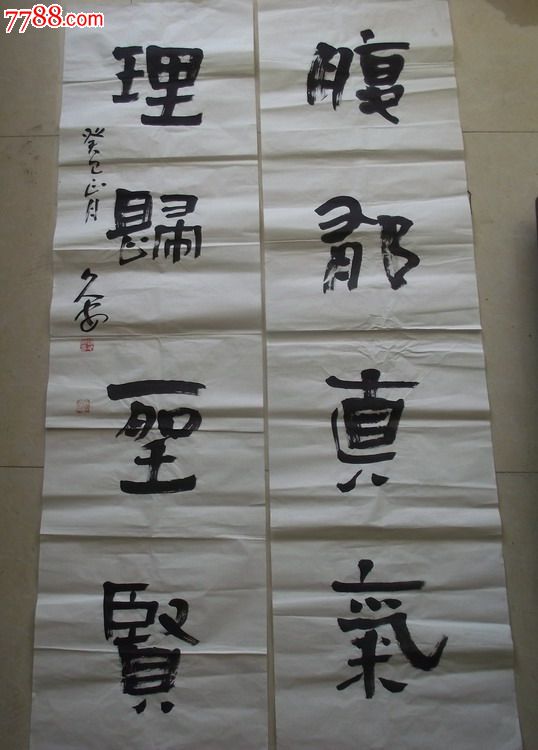 腹郁真氣
理歸聖賢
癸巳正月 久安
7788.com